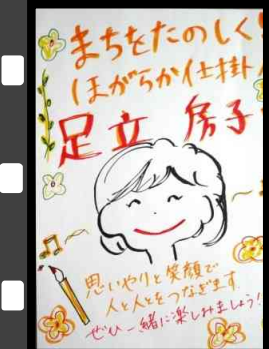 まちをたのしく!
ほがらか仕掛
足立 房子
思いやりと笑顔で
人と人とをつなぎます。
ぜひ一緒に楽しみましょう!